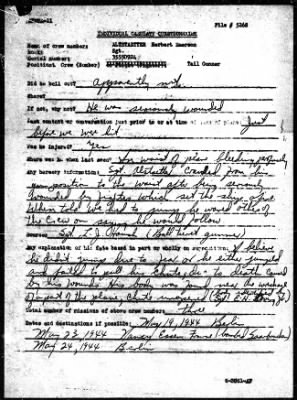 File # 3268
INDIVIDUAL CASUALTY QUESTIONNAIRE
Name of crew member: ALTSTAETTER Herbert Emerson
Rank: Sgt.
Serial number:
Position: Crew (Bomber) Tail Gunner
Did he bail out? Apparently not.
Where?
If not, why not? He was seriously wounded
Last contact or conversation just prior to or at time of loss of plane: Just
before we were hit
Was he injured? Yes
Where was he when last seen? In waist of plane bleeding profusely
Any hearsay information: Sgt. Altstaetter crawled from his
position to the waist after being seriously
wounded by fighters which set the ship afire
When told we had to he waved the rest of
the crew on saying he would follow
Source: Sgt. L. J. (Ball turret gunner)
Any explanation of his fate based in part or wholly on supposition: I believe
he didn't jump due to fear or he either jumped
and failed to pull his chute, due to death caused
by his wounds. His body was found near the wreckage
of a part of the plane, chute unopened
Total number of missions of above crew member: Three
Dates and destinations if possible: May 19, 1944 Berlin
May 23, 1944 Nancy Essen France
May 24, 1944 Berlin